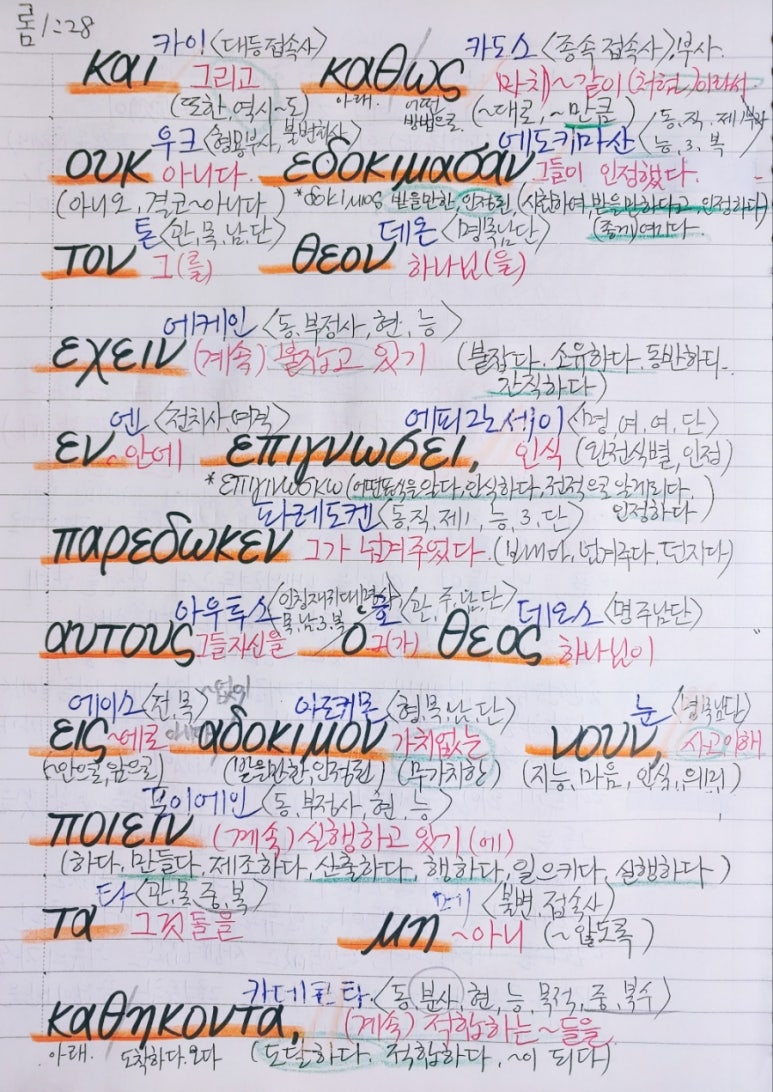 롬 1:28
카이 <대등접속사> 카도스 <종속 접속사>, 부사.
και 그리고 καθως 마치~같이 (처럼) 이라서
(또한, 역시~도) 아래. 어떤 방법으로. (~대로, ~만큼)
우크 <형용부사, 불변화사> 에도키마산 <동, 직, 제1부과 능, 3, 복>
ουκ 아니다. εδοκιμασαν 그들이 인정했다.
(아니오, 결코~아니다) *δοκιμος 받을만한, 인정된, (시험하여, 받을만하다고, 인정하다)
(좋게) 여기다.
톤 <관, 목, 남, 단> 데온 <명목남단>
τον 그(를) θεον 하나님(을)
에케인 <동, 부정사, 현, 능>
εχειν (계속) 붙잡고 있기 (붙잡다. 소유하다. 동반하다.
간직하다)
엔 <전치사 여격> 에피그노세이 <명, 여, 여, 단>
εν ~안에 επιγνωσει, 인식 (완전식별, 인정)
*επιγινωσκω (어떤표식을 알다, 인식하다, 전적으로 알게되다,
인정하다)
파레도켄 <동, 직, 제1, 능, 3, 단>
παρεδωκεν 그가 넘겨주었다. (보내다, 넘겨주다. 던지다)
아우투스 <인칭재귀대명사 목, 남, 3, 복> 호 <관, 주, 남, 단> 데오스 <명주남단>
αυτους 그들자신을 ὁ 그(가) θεος 하나님이
에이스 <전 목> ~없이 아도키몬 <형, 목, 남, 단> 눈 <명목남단>
εις ~에로 αδοκιμον 가치없는 νουν, 사고이해
(~안으로, 앞으로) (받을만한, 인정된) (무가치한) (지능, 마음, 인식, 의미)
포이에인 <동, 부정사, 현, 능>
ποιειν (계속) 실행하고 있기(에)
(하다, 만들다, 제조하다, 산출하다, 행하다, 일으키다, 실행하다)
타 <관, 목, 중, 복> 메 <불변, 접속사>
τα 그것들을 μη ~아니 (~않도록)
카데콘타 <동, 분사, 현, 능, 목적, 중, 복수>
καθηκοντα, (계속) 적합하는~들을
아래. 도착하다. 오다 (도달하다. 적합하다. ~이 되다)